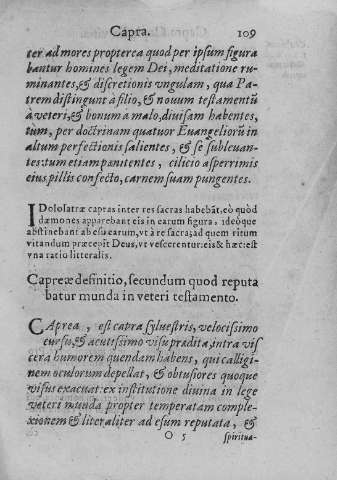 Capra. 109
ter ad mores propterea quod per ipsum figura
bantur homines legem Dei, meditatione ru-
minantes, & discretionis vngulam, qua Pa-
trem distingunt à filio, & nouum testamentū
à veteri, & bonum a malo, diuisam habentes,
tùm, per doctrinam quatuor Euangeliorū in
altum perfectionis salientes, & se subleuan-
tes: tum etiam pœnitentes, cilicio asperrimis
eius pillis confecto, carnem suam pungentes.
IDololatræ capras inter res sacras habebāt, eò quòd
dæmones apparebant eis in earum figura, ideòque
abstinebant ab esu earum, vt à re sacra; ad quem ritum
vitandum præcepit Deus, vt vescerentur eis & hæc: est
vna ratio litteralis.
Capreæ definitio, secundum quod reputa
batur munda in veteri testamento.
CAprea, est capra syluestris, velocissimo
cursu, & acutissimo visu prædita, intra vis
cera humorem quendam habens, qui calligi-
nem oculorum depellat, & obtusiores quoque
visus exacuat: ex institutione diuina in lege
veteri munda propter temperatam comple-
xionem & literaliter ad esum reputata, &
O 5 spiritua-